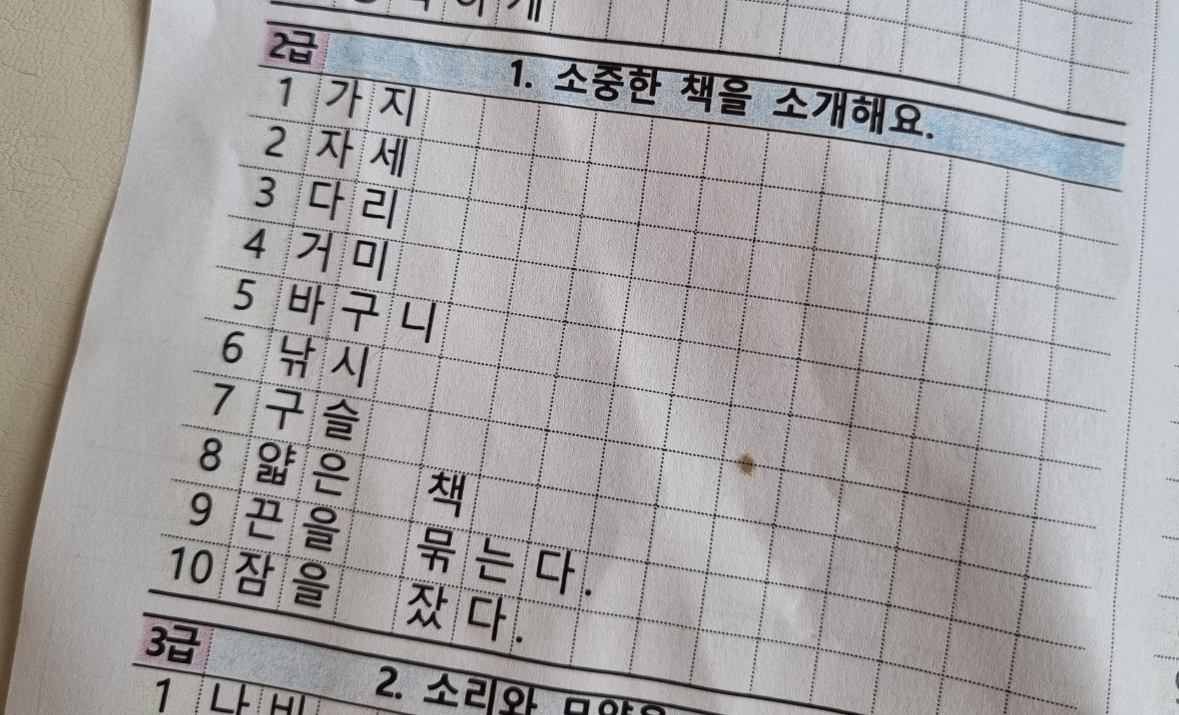 2급 1. 소중한 책을 소개해요.
1 가지
2 자세
3 다리
4 거미
5 바구니
6 낚시
7 구슬
8 얇은 책
9 끈을 묶는다.
10 잠을 잤다.
3급 2. 소리와
1 나비